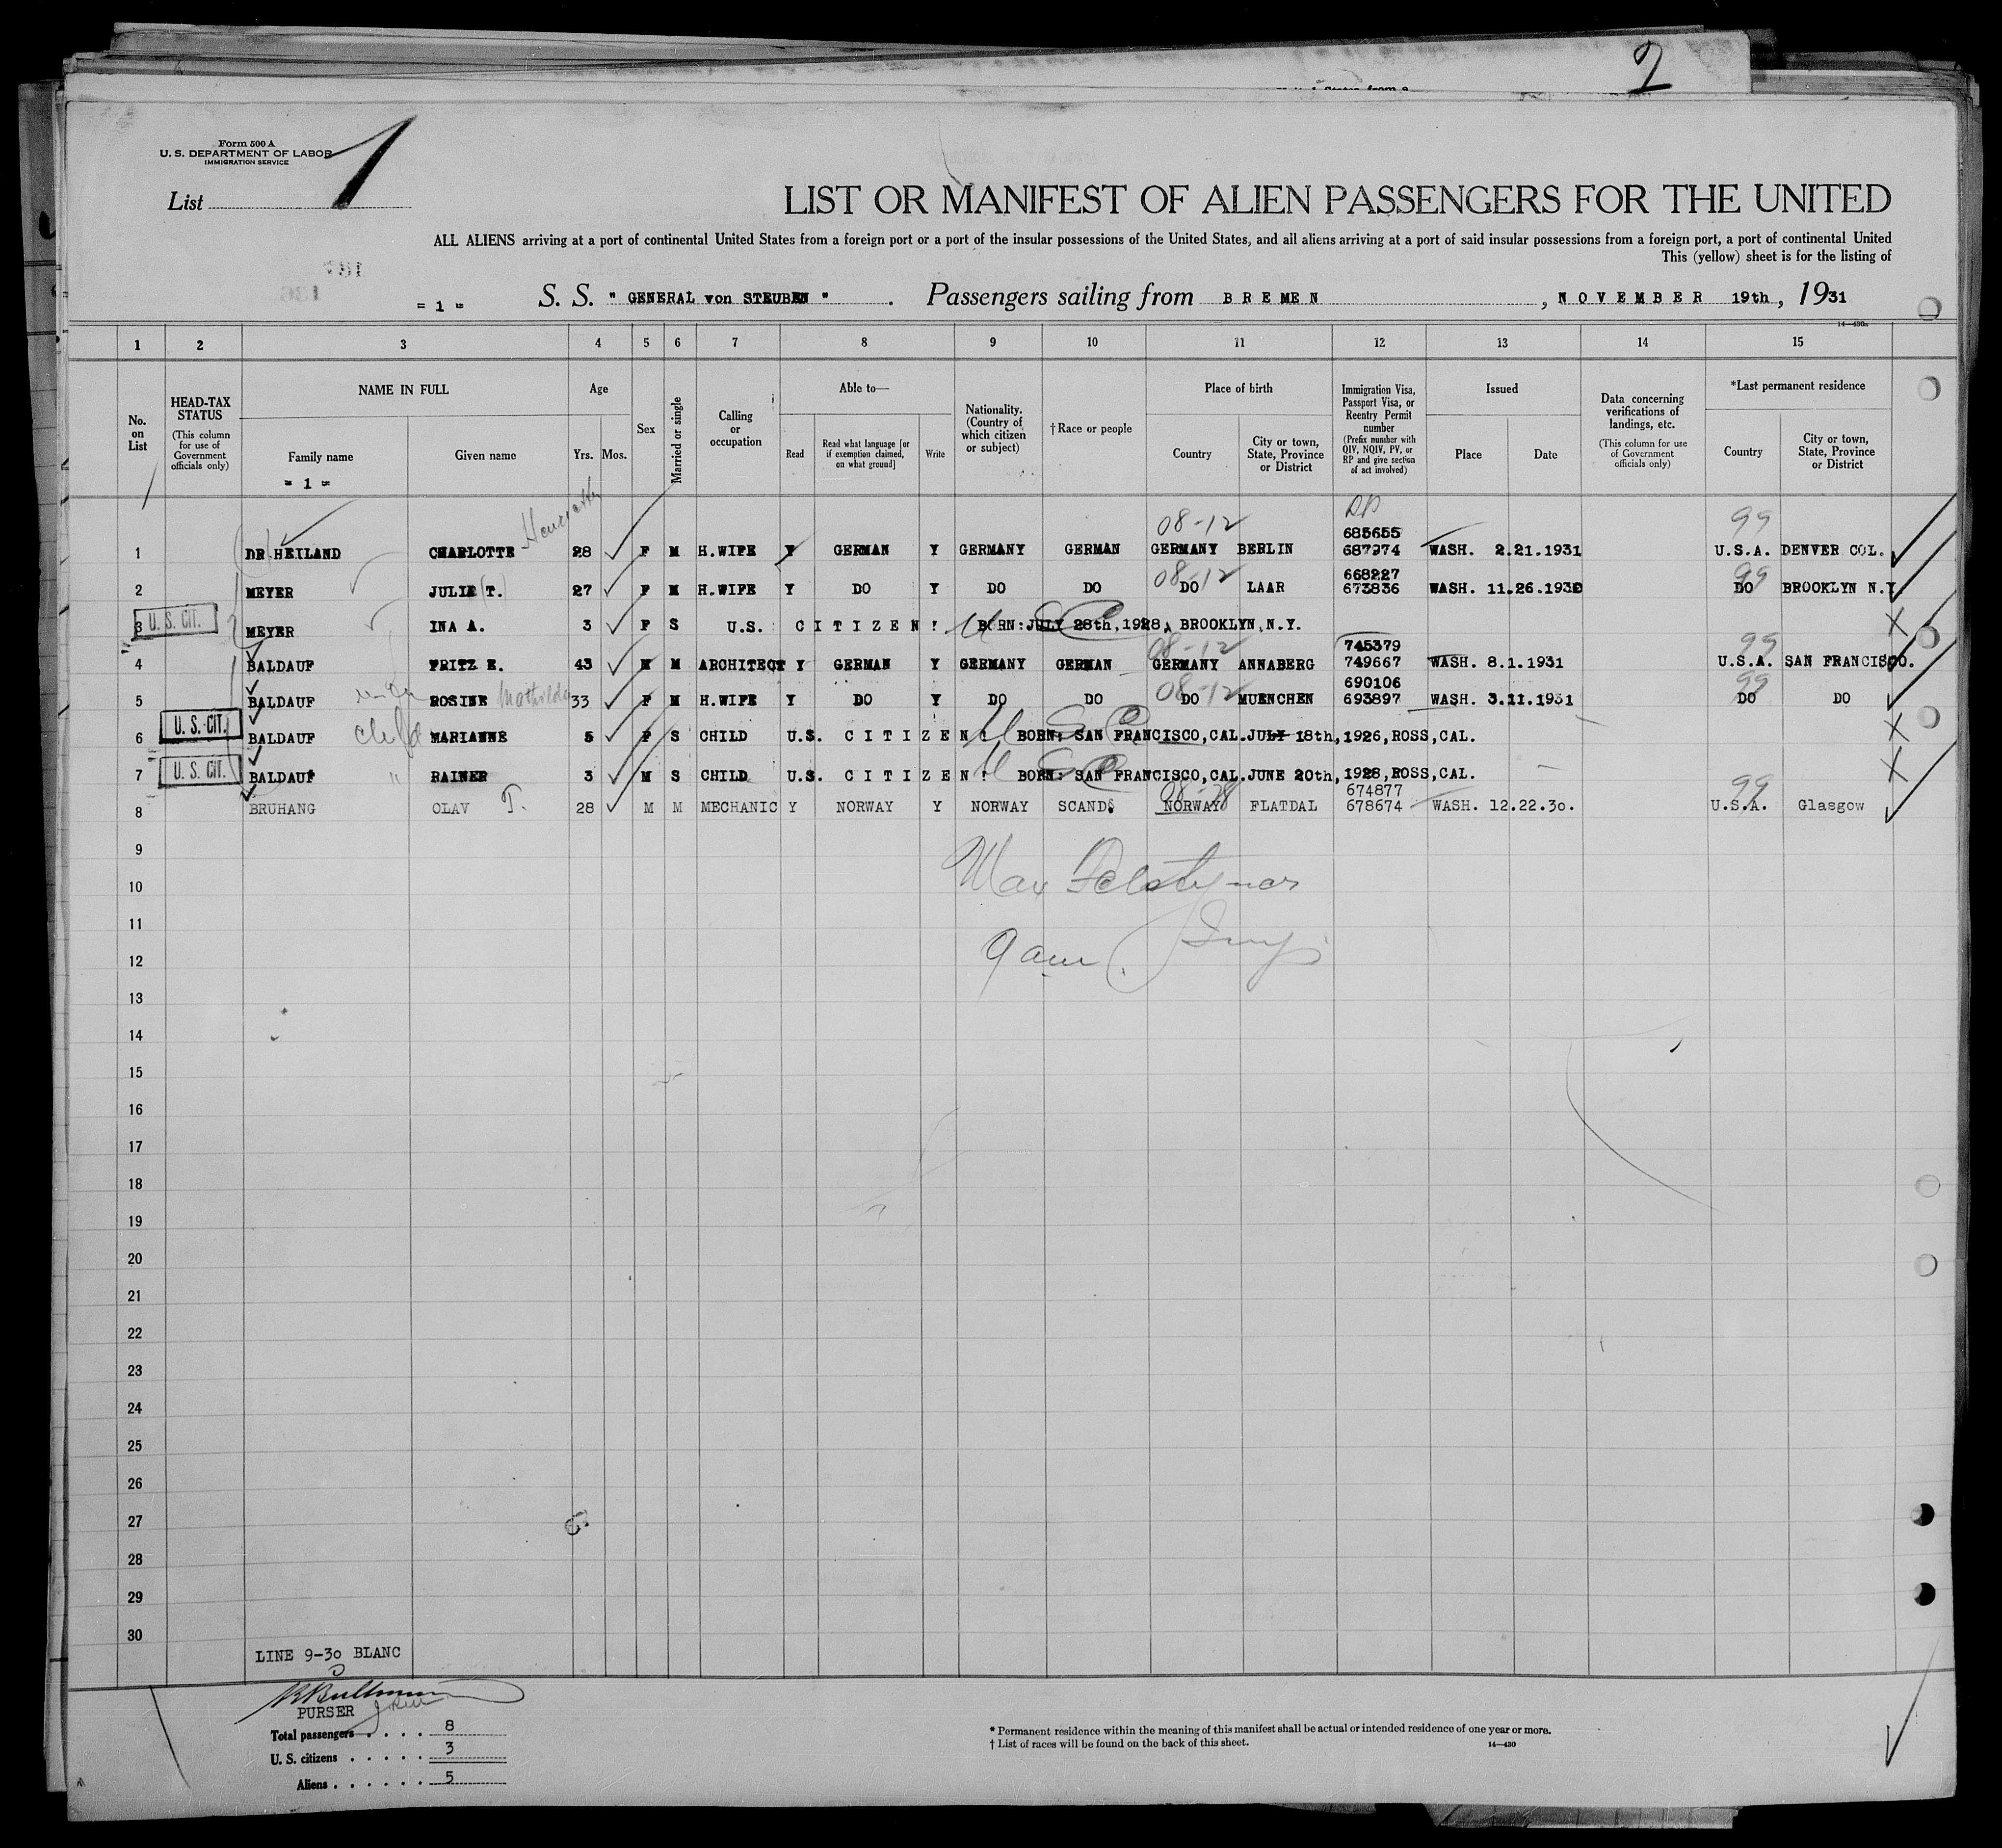 2
Form 500 A
U. S. DEPARTMENT OF LABOR
IMMIGRATION SERVICE
List 1
LIST OR MANIFEST OF ALIEN PASSENGERS FOR THE UNITED
ALL ALIENS arriving at a port of continental United States from a foreign port or a port of the insular possessions of the United States, and all aliens arriving at a port of said insular possessions from a foreign port, a port of continental United
This (yellow) sheet is for the listing of
= 1 = S. S. " GENERAL von STEUBEN " . Passengers sailing from BREMEN , NOVEMBER 19th, 1931
14—430a
1 2 3 4 5 6 7 8 9 10 11 12 13 14 15
No. on List
HEAD-TAX STATUS
(This column for use of Government officials only)
NAME IN FULL
Family name
= 1 =
Given name
Age
Yrs. Mos.
Sex
Married or single
Calling or occupation
Able to—
Read
Read what language [or if exemption claimed, on what ground]
Write
Nationality. (Country of which citizen or subject)
†Race or people
Place of birth
Country
City or town, State, Province or District
Immigration Visa, Passport Visa, or Reentry Permit number
(Prefix number with QIV, NQIV, PV, or RP and give section of act involved)
Issued
Place
Date
Data concerning verifications of landings, etc.
(This column for use of Government officials only)
*Last permanent residence
Country
City or town, State, Province or District
08-12 99
685655
1 DR HEILAND CHARLOTTE 28 F M H.WIFE Y GERMAN Y GERMANY GERMAN GERMANY BERLIN 687974 WASH. 2.21.1931 U.S.A. DENVER COL.
08-12 668227 99
2 MEYER JULIE (T.) 27 F M H.WIFE Y DO Y DO DO DO LAAR 673836 WASH. 11.26.1930 DO BROOKLYN N.Y.
U. S. CIT.
3 MEYER INA A. 3 F S U.S. CITIZEN! BORN:JULY 28th,1928, BROOKLYN,N.Y.
08-12 745379 99
4 BALDAUF FRITZ E. 43 M M ARCHITECT Y GERMAN Y GERMANY GERMAN GERMANY ANNABERG 749667 WASH. 8.1.1931 U.S.A. SAN FRANCISCO.
08-12 690106 99
5 BALDAUF ROSINE Mathilde 33 F M H.WIFE Y DO Y DO DO DO MUENCHEN 693897 WASH. 3.11.1931 DO DO
U. S. CIT.
6 BALDAUF child MARIANNE 5 F S CHILD U.S. CITIZEN! BORN: SAN FRANCISCO,CAL.JULY 18th,1926,ROSS,CAL.
U. S. CIT.
7 BALDAUF " RAINER 3 M S CHILD U.S. CITIZEN! BORN: SAN FRANCISCO,CAL.JUNE 20th,1928,ROSS,CAL.
674877 99
8 BRUHANG OLAV T. 28 M M MECHANIC Y NORWAY Y NORWAY SCAND. NORWAY FLATDAL 678674 WASH. 12.22.30. U.S.A. Glasgow
9
Max
10
11
9 am
12
13
14
15
16
17
18
19
20
21
22
23
24
25
26
27
28
29
30
LINE 9-30 BLANC
PURSER
Total passengers . . . . 8
U. S. citizens . . . . . 3
Aliens . . . . . . 5
* Permanent residence within the meaning of this manifest shall be actual or intended residence of one year or more.
† List of races will be found on the back of this sheet.
14—430